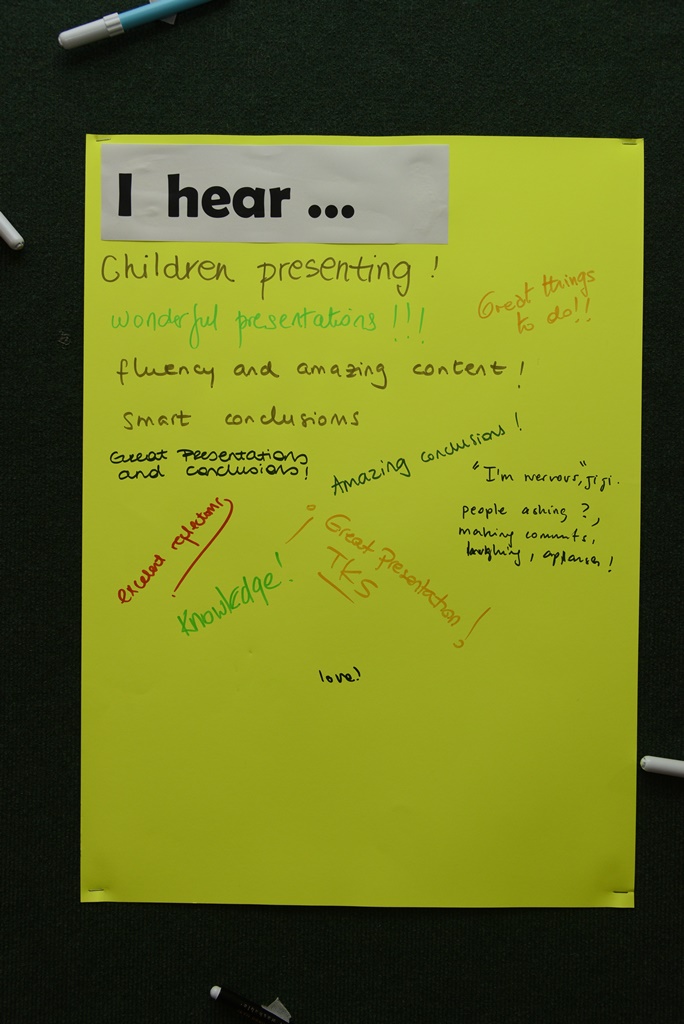 I hear ...
Children presenting!
wonderful presentations!!!
Great things
to do!!
fluency and amazing content!
smart conclusions
Great Presentations
and conclusions!
Amazing conclusions!
"I'm nervous", jiji.
people asking?,
making comments,
laughing, applause!
excelent reflections!
Knowledge!
¡Great Presentation!
TKS
love!